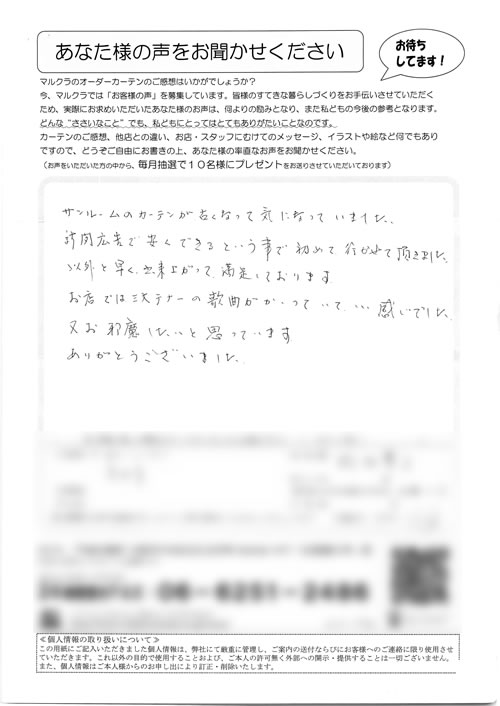 あなた様の声をお聞かせください
お待ち
してます!
マルクラのオーダーカーテンのご感想はいかがでしょうか?
今、マルクラでは「お客様の声」を募集しています。皆様のすてきな暮らしづくりをお手伝いさせていただく
ため、実際にお求めいただいたあなた様のお声は、何よりの励みとなり、また私どもの今後の参考となります。
どんな“ささいなこと”でも、私どもにとってはとてもありがたいことなのです。
カーテンのご感想、他店との違い、お店・スタッフにむけてのメッセージ、イラストや絵など何でもあり
ですので、どうぞご自由にお書きの上、あなた様の率直なお声をお聞かせください。
(お声をいただいた方の中から、毎月抽選で10名様にプレゼントをお送りさせていただいております)
サンルームのカーテンが古くなって気になっていました。
新聞広告で安くできるという事で初めて行かせて頂きました。
以外と早く出来上がって満足しております。
お店では三大テナーの歌曲がかかっていて、いい感じでした。
又お邪魔したいと思っています
ありがとうございました。
06-6251-2486
≪個人情報の取り扱いについて≫
この用紙にご記入いただきました個人情報は、弊社にて厳重に管理し、ご案内の送付ならびにお客様へのご連絡に限り使用させ
ていただきます。これ以外の目的で使用することおよび、ご本人の許可無く外部への開示・提供することは一切ございません。
また、個人情報はご本人様からのお申し出により訂正・削除いたします。